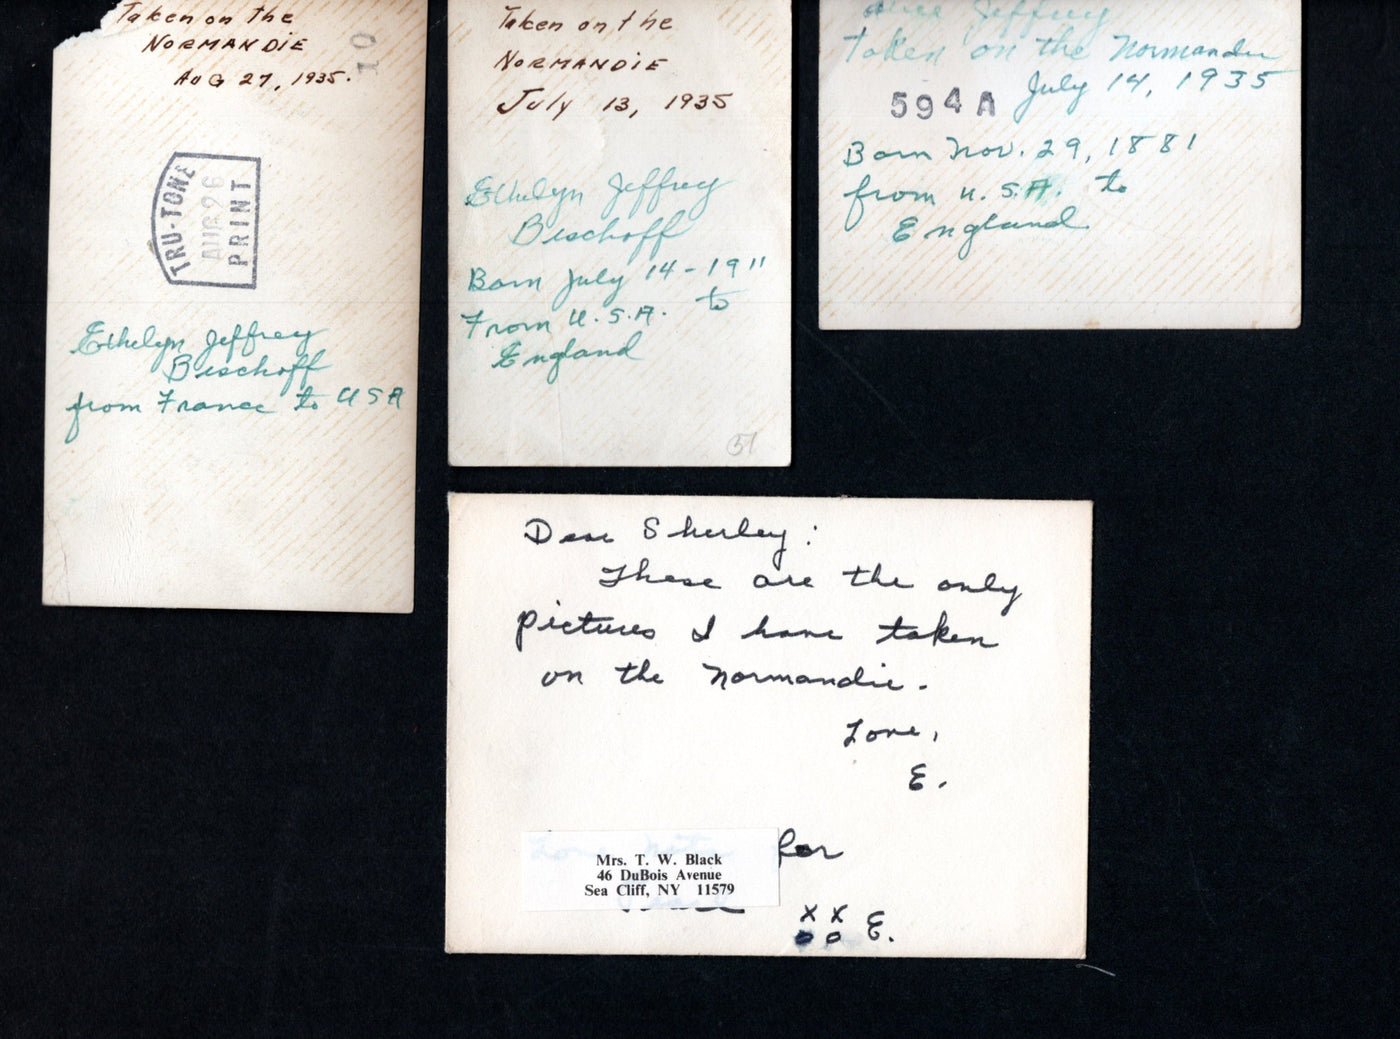 Taken on the
NORMANDIE
AUG 27, 1935.
10
TRU-TONE
AUG 26
PRINT
Ethelyn Jeffrey
Bischoff
from France to USA
Taken on the
NORMANDIE
July 13, 1935
Ethelyn Jeffrey
Bischoff
Born July 14-1911
From U.S.A. to
England
51
Jeffrey
taken on the Normandie
594A July 14, 1935
Born Nov. 29, 1881
from U.S.A. to
England
Dear Sherley:
These are the only
pictures I have taken
on the Normandie.
Love,
E.
for
Mrs. T. W. Black
46 DuBois Avenue
Sea Cliff, NY 11579
x x E.
o o